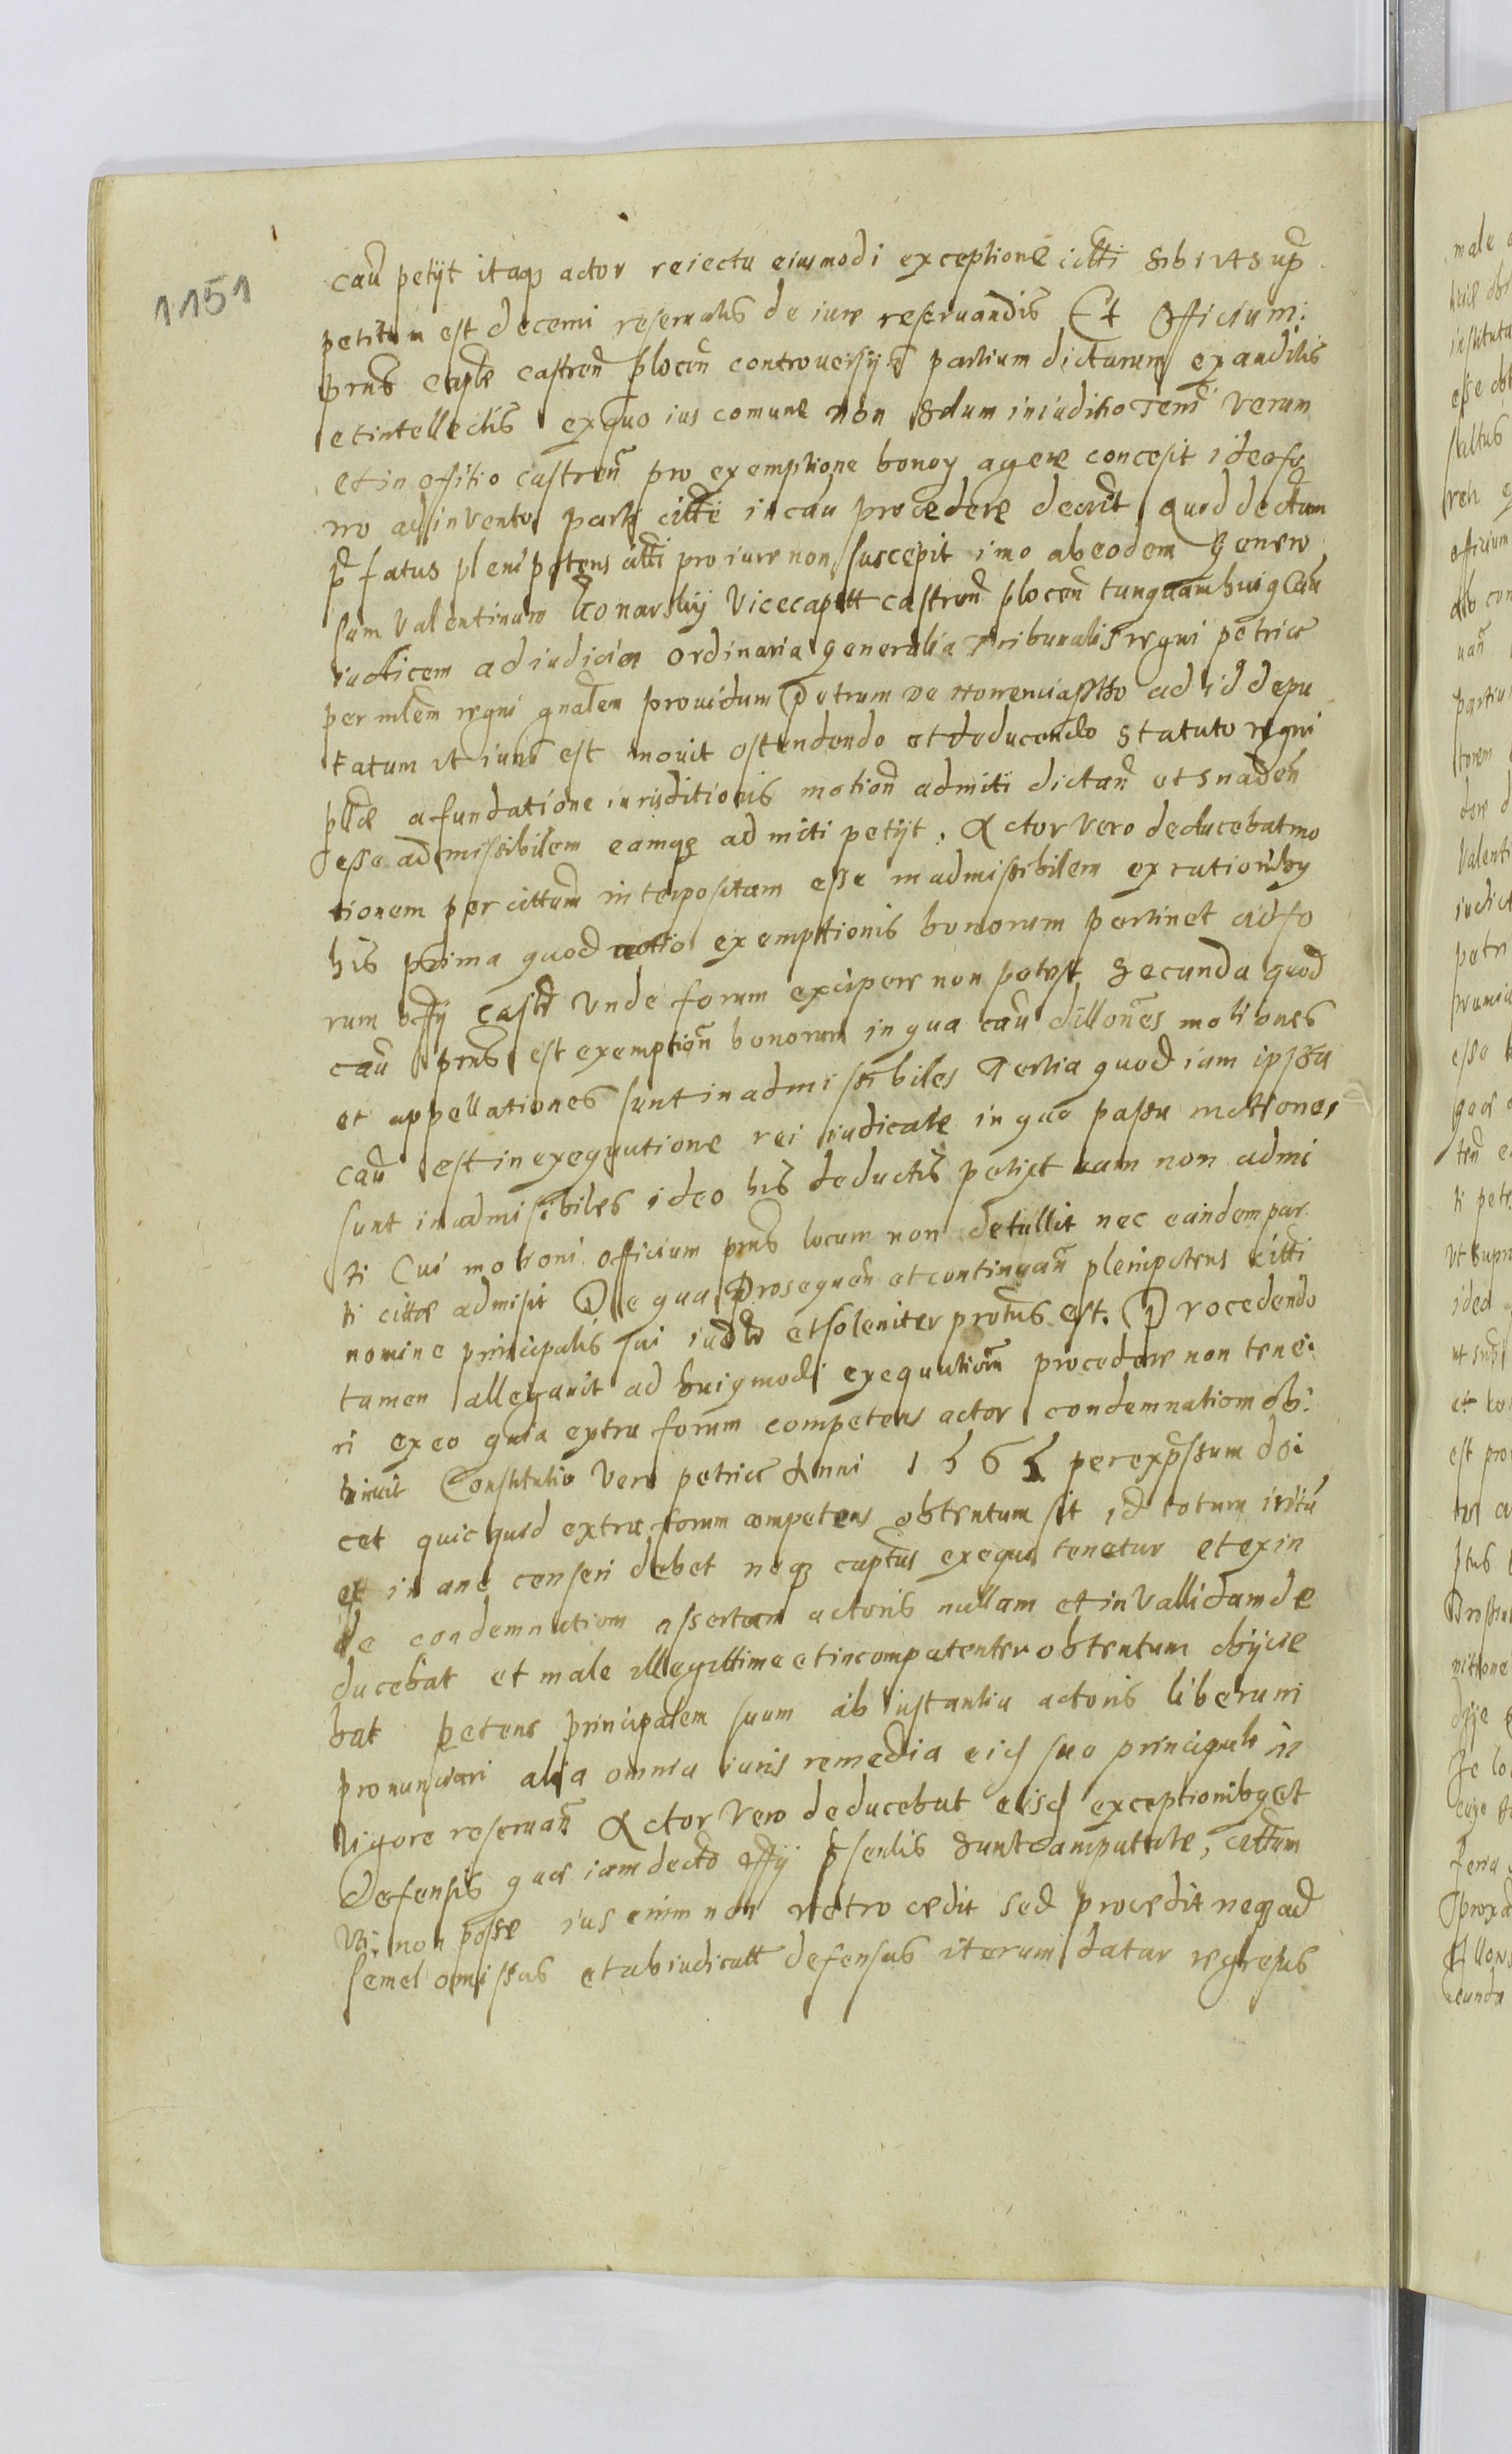 1151
cau petijt itaq actor reiecta eiusmodi exceptione citti sibi ut sup
petitum est decerni reservatis de iure reservandis Et Officium
prns caple castren plocen controversijs partium dictarum exauditis
et intellectis ex quo ius comune non solum in iuditio terri verum
et in offitio castren pro exemptione bonor agere concesit ideo fo
ro adinvento parti citte in cau procedere decrit Quod dectum
p fatus plenipotens citti pro iure non suscepit imo ab eodem Genero
sum Valentinum Konarskij Vicecaptt castren plocen tanquam huig cau
iudicem ad iudicia ordinaria generalia tribunalis regni petric
per mlem regni gnalem providum Petrum de ad id depu
tatum ut iuris est movit ostendendo et deducendo statuto regni
a fundatione iurisditionis motion admiti dictan et snaden
esse admissibilem eamqe admiti petijt. Actor vero deducebat mo
tionem per cittum interpositam esse inadmissibilem ex rationiby
his prima quod actio exemptionis bonorum pertinet ad fo
rum offij castr Unde forum excipere non potest Secunda quod
cau prns est exemption bonorum in qua cau dillones motiones
et appellationes sunt inadmissibiles Tertia quod iam ipssa
cau est in exequutione rei iudicate in quo passu motiones
sunt inadmisibiles ideo his deductis petijt eam non admi
ti Cui motioni officium prns locum non detullit nec eandem par
ti citte admisit De qua Prosequen et continuan plenipotens citti
nomine principalis sui et soleniter protus est. Procedendo
tamen allegavit ad huigmodi exequution procedere non tene
ri ex eo quia extra forum competens actor condemnatiom ob
tinuit Constitutio vero petric Anni 1565 per expssum doi
cet quicquid extra forum competens obtentum sit id totum iritu
et inane censeri debet neq captus exequi tenetur et exin
de condemnatiom assertam actoris nullam et invallidam de
ducebat et male illegittime et incompetenter obtentum obijcie
bat petens principalem suum ab instantia actoris liberum
pronunciari alia omnia iuris remedia eid suo principali in
vigore reservan Actor vero deducebat eisd exceptioniby et
Defensis que iam decto offij psentis sunt amputtate, cittum
uti non posse ius enim non retro cedit sed procedit neq ad
semel omissas et abiudicatt defensas iterum datur regresus